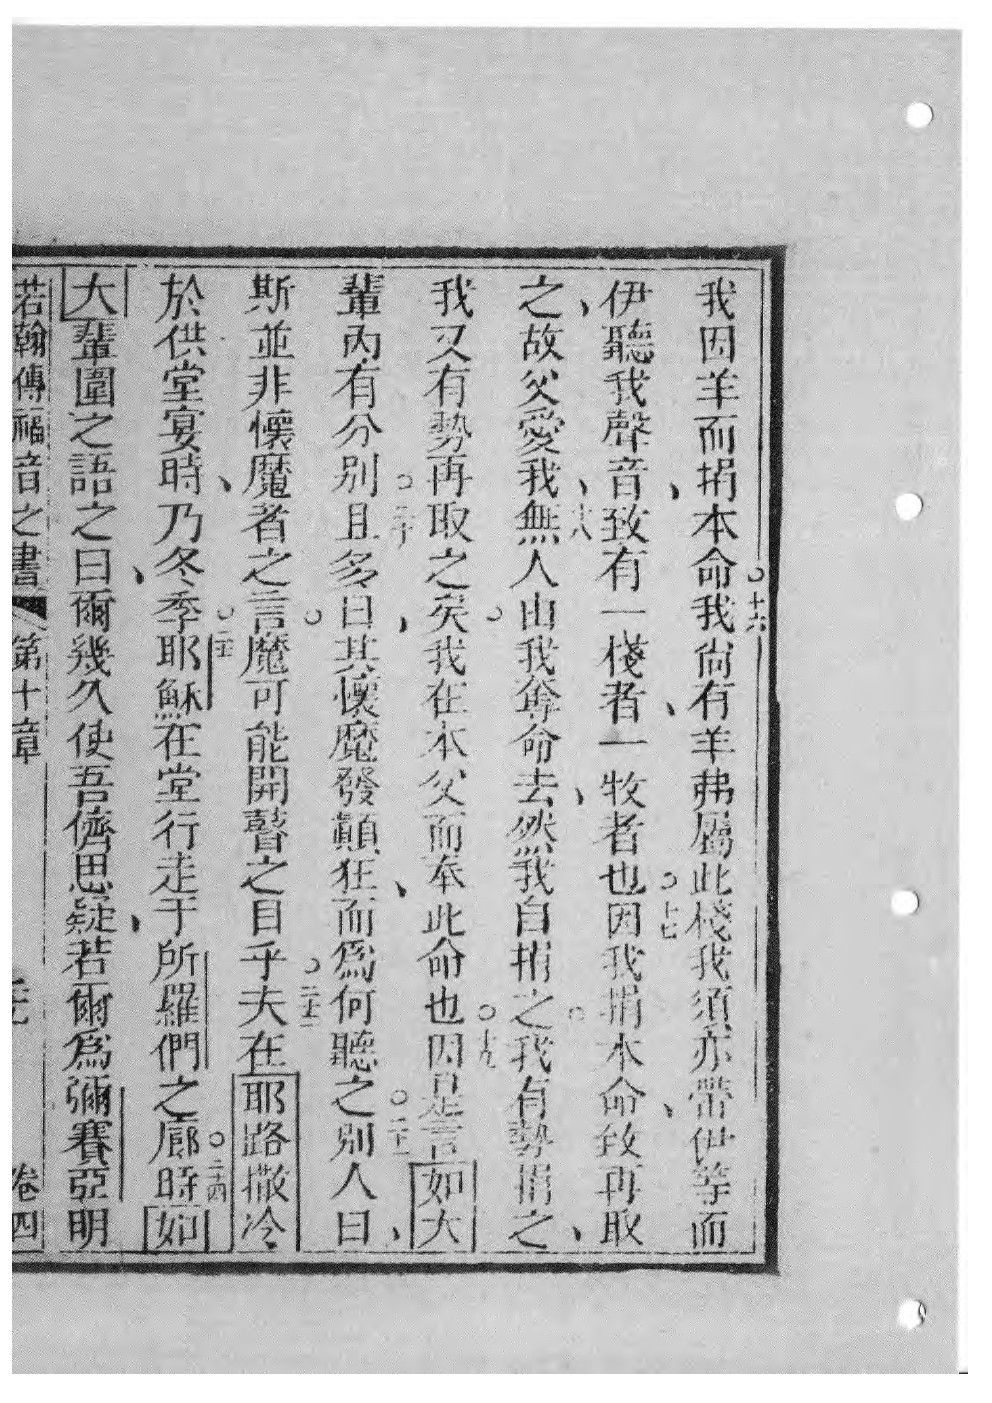 我因羊而捐本命○十六我尙有羊弗屬此棧我須亦帶伊等而
伊聽我聲音、致有一棧者、一牧者也○十七因我捐本命、致再取
之、故父愛我、○十八無人由我奪命去、然我自捐之○我有勢捐之、
我又有勢再取之矣○我在本父而奉此命也○十九因是言如大
輩內有分別○二十且多曰、其懷魔發顛狂、而爲何聽之○二十一別人曰、
斯並非懷魔者之言○魔可能開瞽之目乎○二十二夫在耶路撒冷
於供堂宴時、乃冬季○二十三耶穌在堂行走于所羅們之廊時○二十四如
大輩圍之語之曰、爾幾久使吾儕思疑、若爾爲彌賽亞明
若翰傳福音之書 第十章 卷四